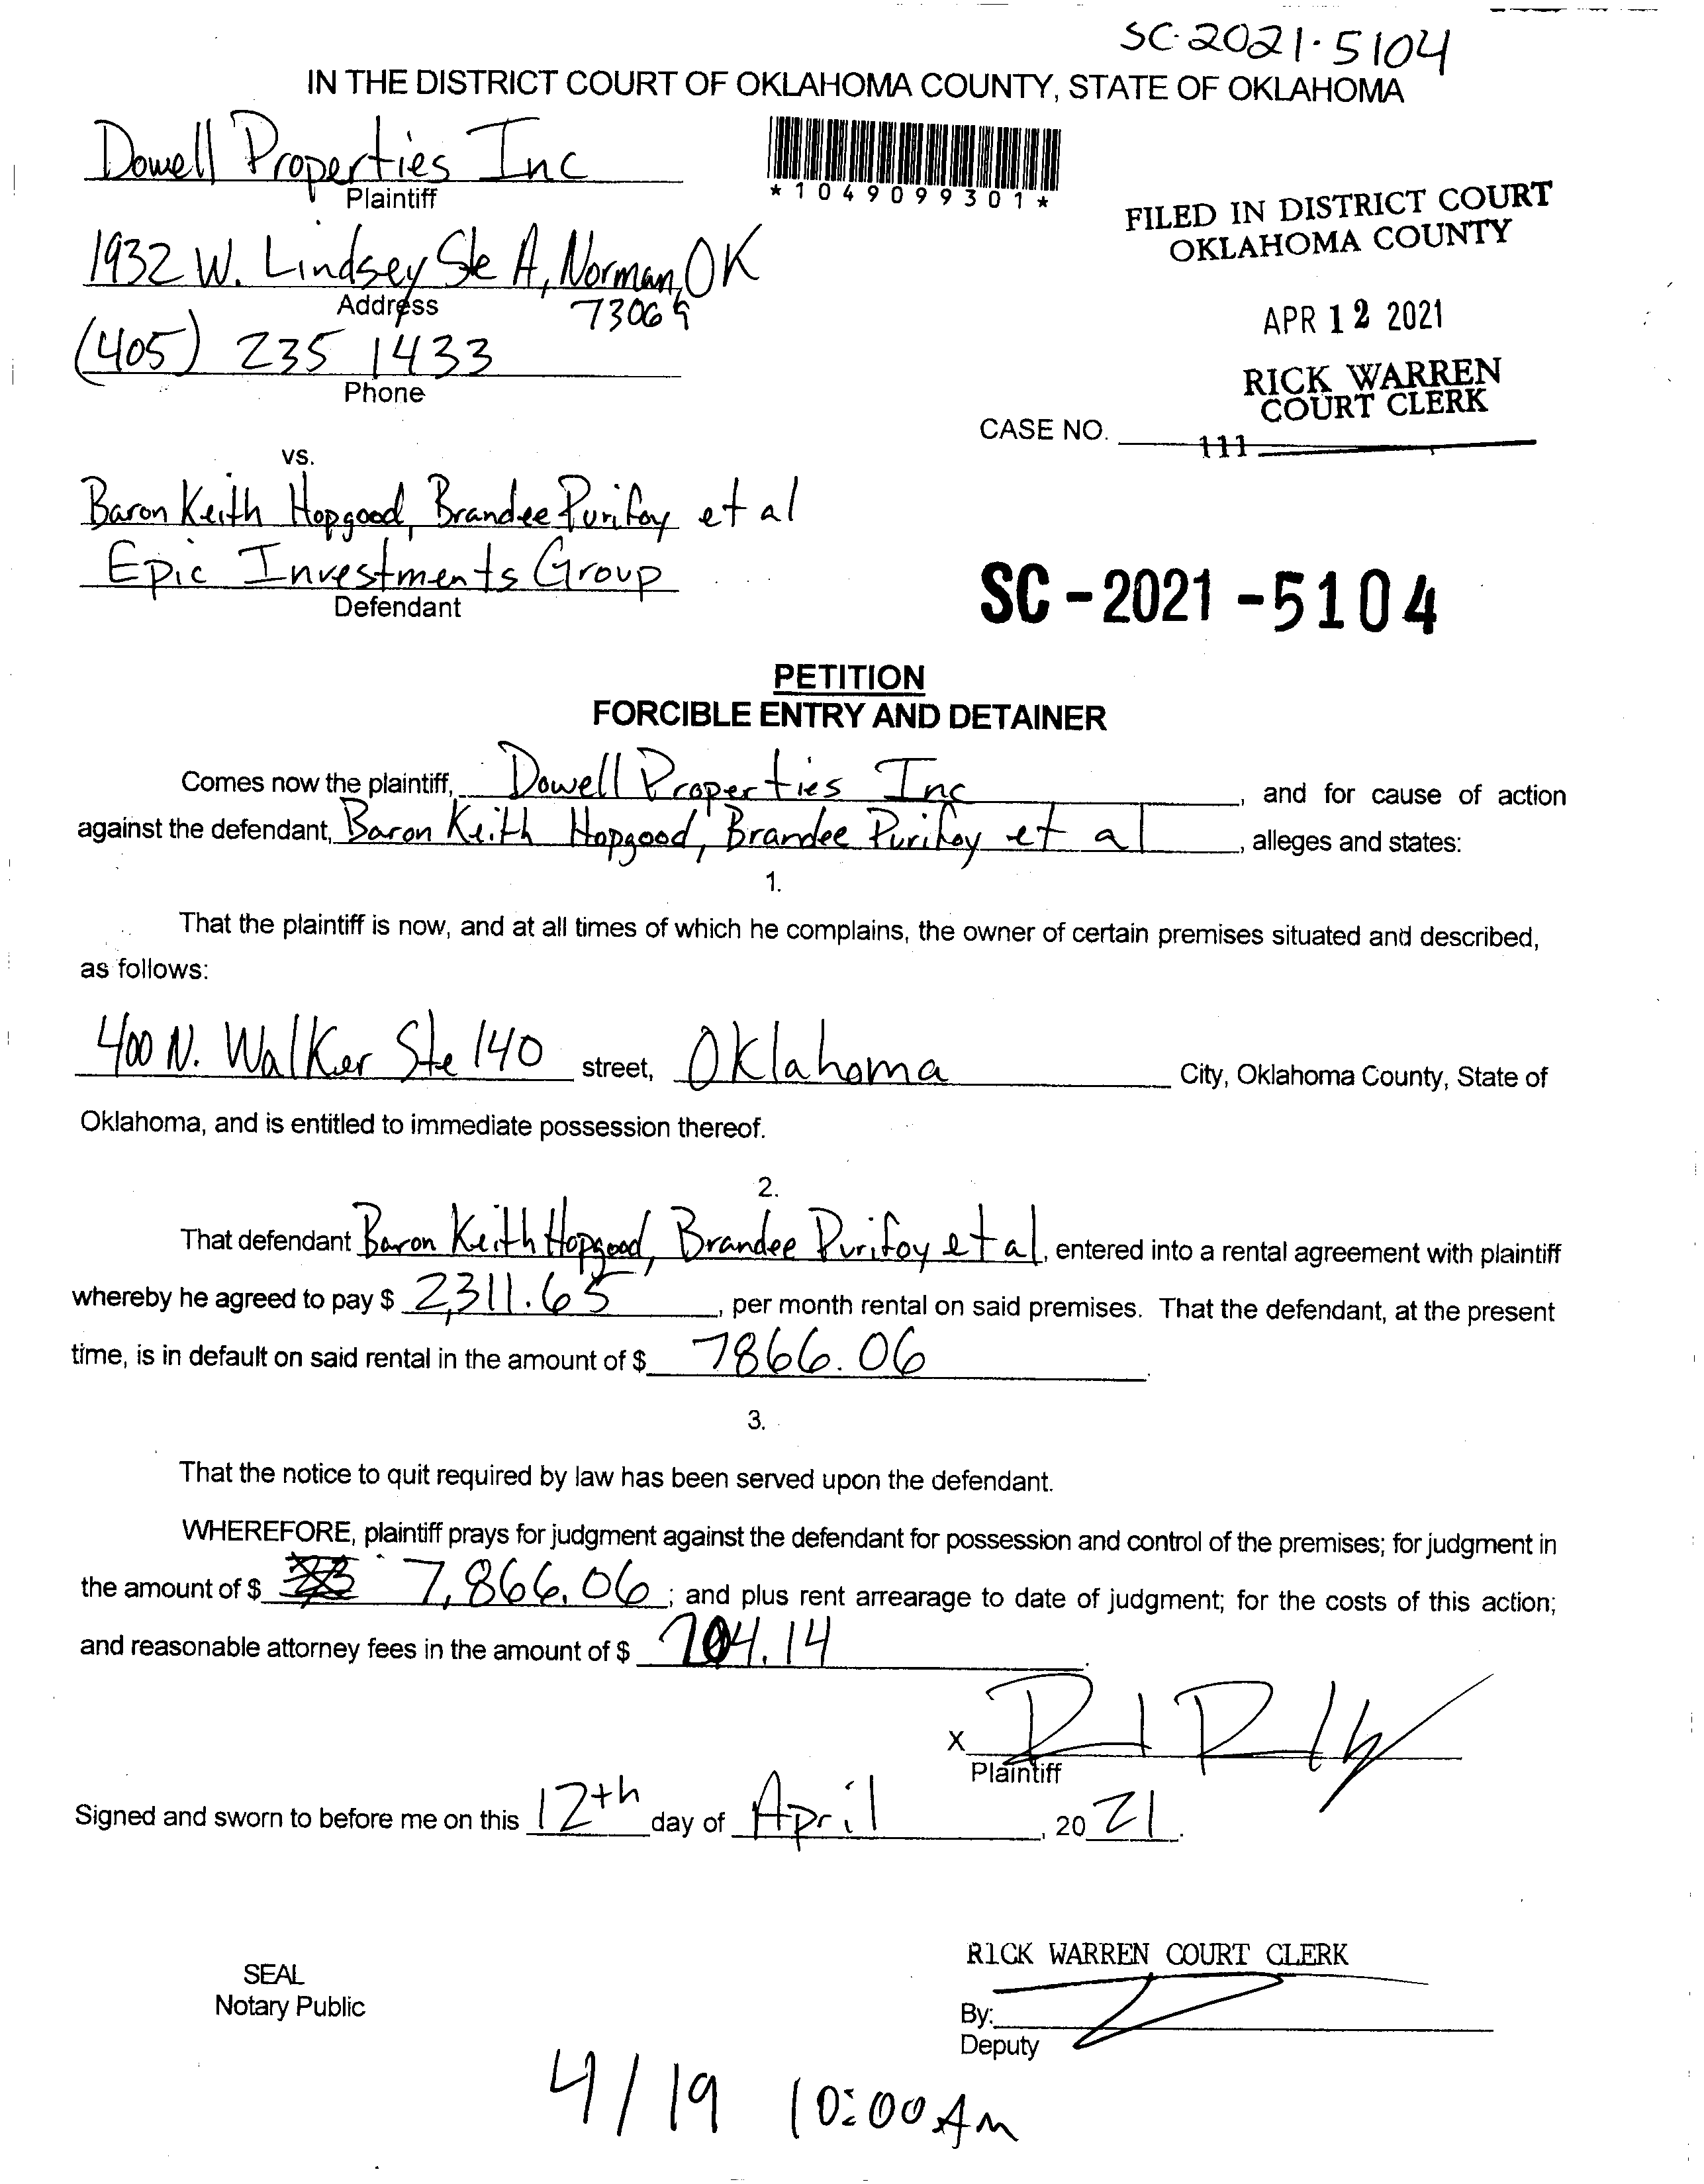 SC-2021-5104
IN THE DISTRICT COURT OF OKLAHOMA COUNTY, STATE OF OKLAHOMA
Dowell Properties Inc
Plaintiff
*1049099301*
1932 W. Lindsey Ste A, Norman, OK
73069
Address
(405) 235 1433
Phone
FILED IN DISTRICT COURT
OKLAHOMA COUNTY
APR 12 2021
RICK WARREN
COURT CLERK
CASE NO.
111
vs.
Baron Keith Hopgood, Brandee Purifoy et al
Epic Investments Group
Defendant
SC-2021-5104
PETITION
FORCIBLE ENTRY AND DETAINER
Comes now the plaintiff, Dowell Properties Inc, and for cause of action
against the defendant, Baron Keith Hopgood, Brandee Purifoy et al, alleges and states:
1.
That the plaintiff is now, and at all times of which he complains, the owner of certain premises situated and described,
as follows:
400 N. Walker Ste 140 street, Oklahoma City, Oklahoma County, State of
Oklahoma, and is entitled to immediate possession thereof.
2.
That defendant Baron Keith Hopgood, Brandee Purifoy et al, entered into a rental agreement with plaintiff
whereby he agreed to pay $ 2,311.65, per month rental on said premises. That the defendant, at the present
time, is in default on said rental in the amount of $ 7866.06.
3.
That the notice to quit required by law has been served upon the defendant.
WHEREFORE, plaintiff prays for judgment against the defendant for possession and control of the premises; for judgment in
the amount of $ 7,866.06; and plus rent arrearage to date of judgment; for the costs of this action;
and reasonable attorney fees in the amount of $ 704.14.
X
Plaintiff
Signed and sworn to before me on this 12th day of April, 20 21.
SEAL
Notary Public
RICK WARREN COURT CLERK
By:
Deputy
4/19 10:00 AM